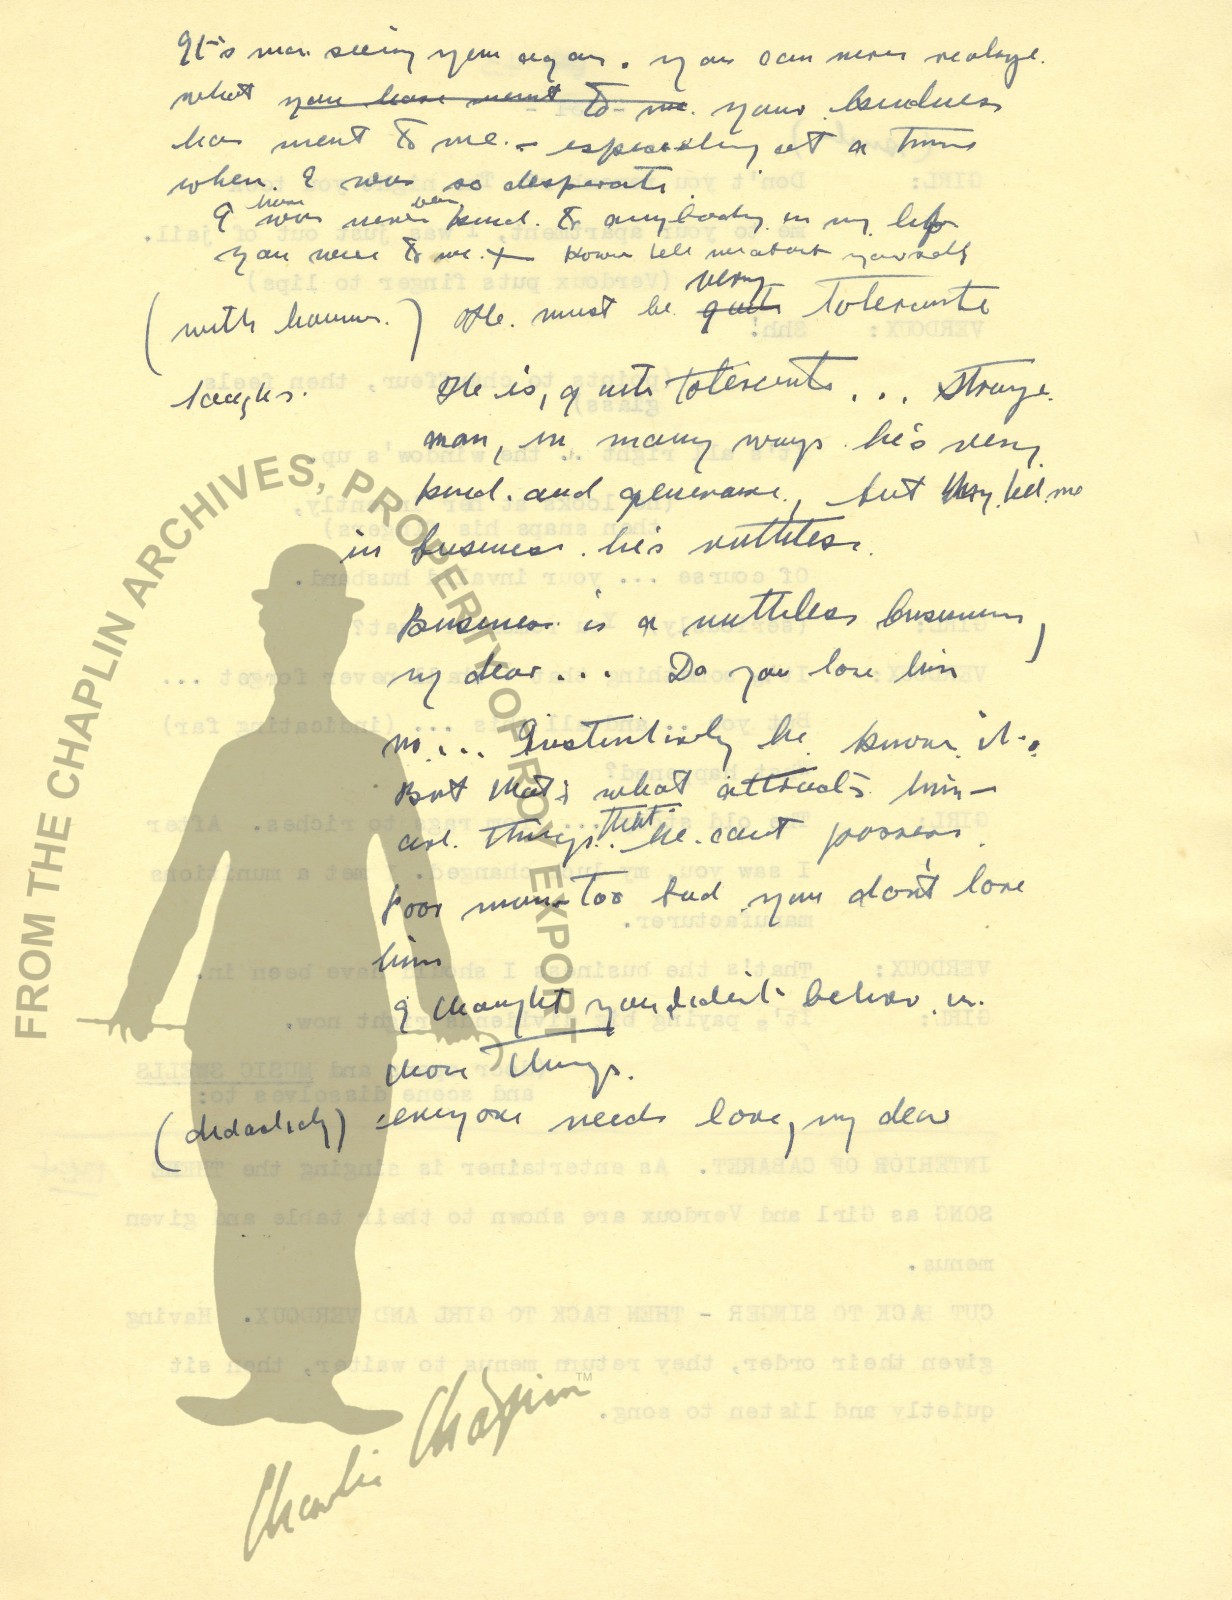 It's nice seeing you again. you can never realize.
what you have ment to me. your kindness
has ment to me. – especially at a time
when. I was so desperate.
I was have never been kind. to anybody in my life
you were to me. + tell me about yourself
(with humour.) He. must be. quite very tolerante
laughs. He is, quite tolerante ... Strange.
man, in many ways he's very
kind. and generouse, but they tell me
in business. he's ruthless.
Business is a ruthless business,
my dear ... Do you love him
no ... Instentively he knows it.
But that's what attracts him –
are. things. that he. can't possess.
Poor man – Too bad you don't love
him
I thought you didn't believe in.
those things.
(didacticly) everyone needs love, my dear
FROM THE CHAPLIN ARCHIVES, PROPERTY OF ROY EXPORT
Charlie Chaplin™
GIRL: Don't you remember? The night you took
me to your apartment, I was just out of jail.
(Verdoux puts finger to lips)
VERDOUX: Shh!
(points to chauffeur, then feels
glass)
It's all right .. the window's up.
(he looks at her intently,
then snaps his fingers)
Of course ... your invalid husband.
GIRL:
VERDOUX: never forget ...
But you ... and all this ... (indicating far)
What happened?
GIRL: The old story ... from rags to riches. After
I saw you, my luck changed. I met a munitions
manufacturer.
VERDOUX: That's the business I should have been in.
GIRL: It's paying big dividends right now.
and MUSIC SWELLS
and scene dissolves to:
INTERIOR OF CABARET. As entertainer is singing the THEME
SONG as Girl and Verdoux are shown to their table and given
menus.
CUT BACK TO SINGER - THEN BACK TO GIRL AND VERDOUX. Having
given their order, they return menus to waiter, then sit
quietly and listen to song.